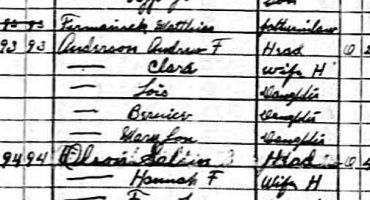 Matthias fatherinlaw
93 93 Anderson Andrew F Head O
— Clara Wife H
— Lois Daughter
— Bernice Daughter
— Mary Lou Daughter
94 94 Olson Head O
— Hannah F Wife H